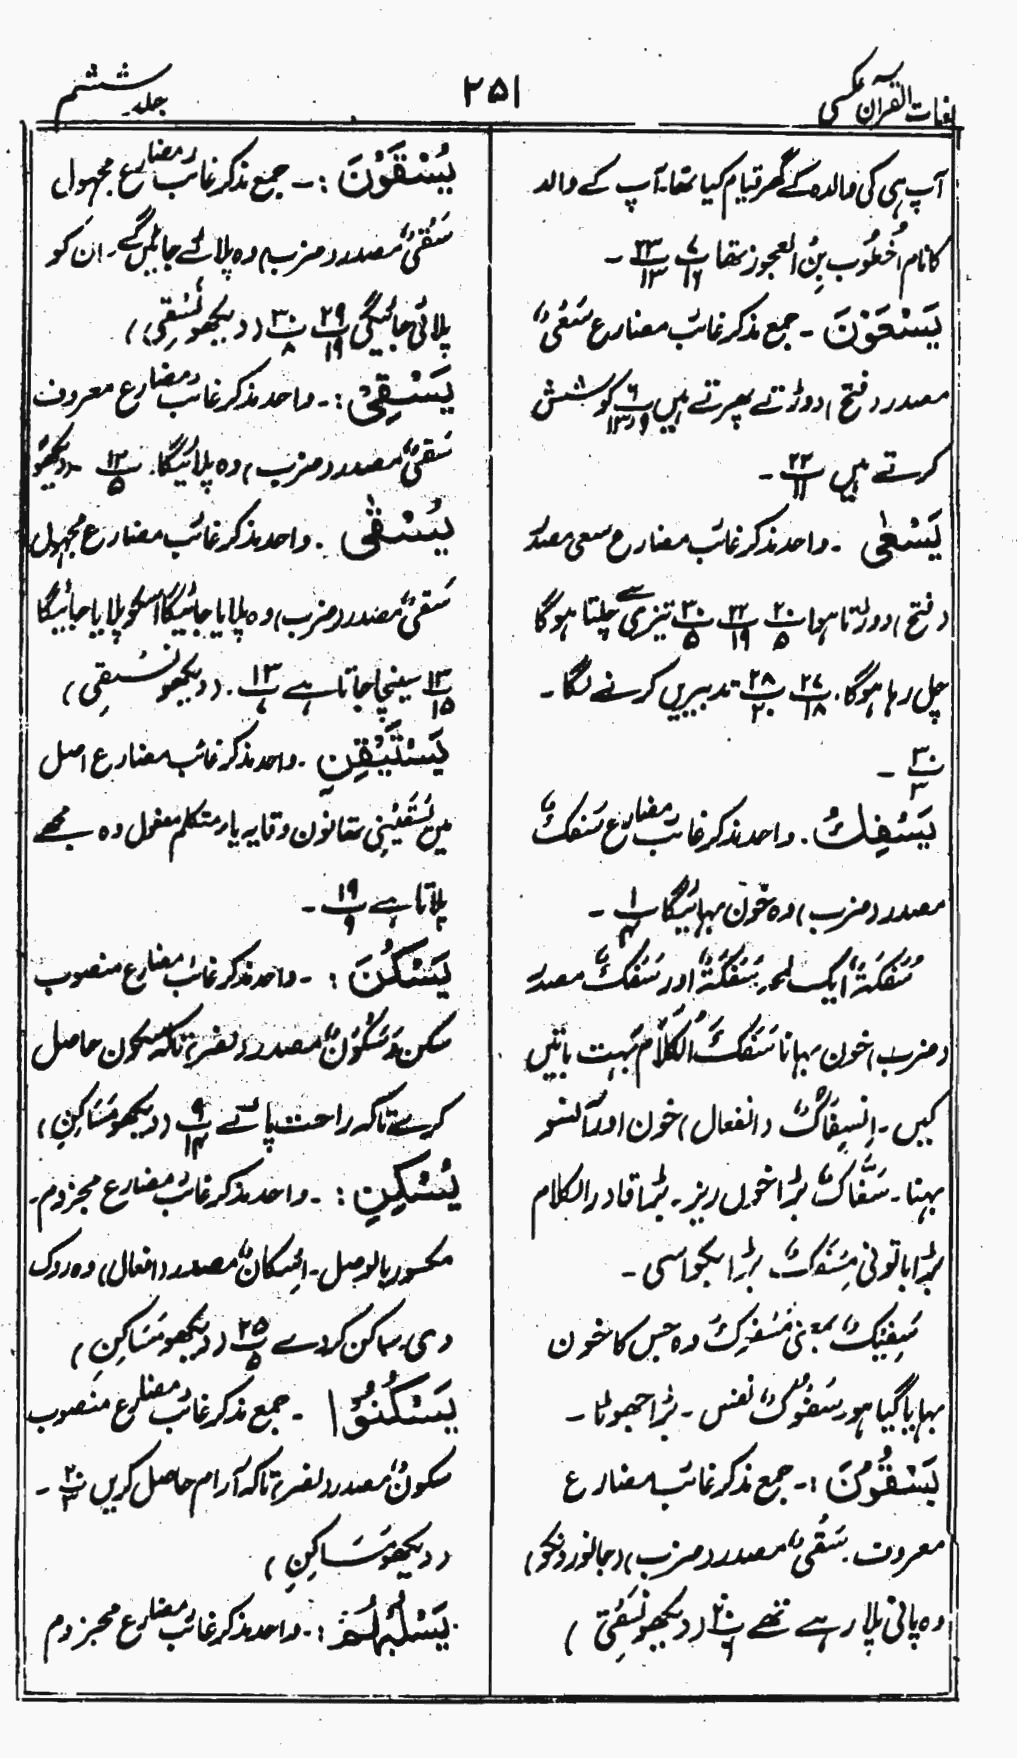 لغات القرآن عکسی
۲۵۱
جلد ششم
آپ ہی کی والدہ کے گھر قیام کیا تھا۔ آپ کے والد
کا نام اُخْطُوب بِنُ العجوز تھا ۷/۱۶ ۲۳/۱۳ ۔
یَسْعَوْنَ ۔ جمع مذکر غائب مضارع سَعْیٌ
مصدر (فتح) دوڑتے پھرتے ہیں ۶/۱۳و۹ کوشش
کرتے ہیں ۲۲/۱۱ ۔
یَسْعٰی ۔ واحد مذکر غائب مضارع سعی مصدر
(فتح) دوڑتا ہوا ۲۰/۵ ۲۲/۱۹ ۳۰/۵ تیزی سے چلتا ہوگا
چل رہا ہوگا۔ ۲۷/۱۸ ۲۸/۲۰ تدبیریں کرنے لگا ۔
۳۰/۳ ۔
یَسْفِكُ ۔ واحد مذکر غائب مضارع سَفْكٌ
مصدر (ضرب) وہ خون بہائیگا ۱/۴ ۔
سُفْکَۃٌ ایک لمحہ سَفْکَۃٌ اور سَفْكٌ مصدر
(ضرب) خون بہانا سَفَكَ الْکَلَامَ بہت باتیں
کیں ۔ اِنْسِفَاكٌ (انفعال) خون اور آنسو
بہنا ۔ سَفَّاكٌ بڑا خوں ریز ۔ بڑا قادر الکلام
بڑا باتونی مِسْفَكٌ بڑا بکواسی ۔
سَفِیْكٌ بمعنی مَسْفُوْكٌ وہ جس کا خون
بہایا گیا ہو۔ سَفُوْكٌ نفس ۔ بڑا جھوٹا ۔
یَسْقُوْنَ :۔ جمع مذکر غائب مضارع
معروف ۔ سَقْیٌ مصدر (ضرب) (جانوروں کو)
وہ پانی پلا رہے تھے ۲۰/۶ (دیکھو نُسْقِیَ)
یُسْقَوْنَ :۔ جمع مذکر غائب مضارع مجہول
سَقْیٌ مصدر (ضرب) وہ پلائے جائیں گے ۔ ان کو
پلائی جائیگی ۲۹/۱۹ ۳۰/۸ (دیکھو نُسْقِیَ)
یَسْقِیْ :۔ واحد مذکر غائب مضارع معروف
سَقْیٌ مصدر (ضرب) وہ پلائیگا ۔ ۱۲/۵ ۔ (دیکھو
یُسْقٰی ۔ واحد مذکر غائب مضارع مجہول
سَقْیٌ مصدر (ضرب) وہ پلایا جائیگا اسکو پلایا جائیگا
۱۳/۱۵ سینچا جاتا ہے ۱۳/۷ ۔ (دیکھو نسقی)
یَسْقِیْنِ ۔ واحد مذکر غائب مضارع اصل
میں یَسْقِیْنِیْ تھا نون وقایہ یاء متکلم مفعول وہ مجھے
پلاتا ہے ۱۹/۹ ۔
یَسْکُنَ :۔ واحد مذکر غائب مضارع منصوب
سکن و سُکُوْنٌ مصدر (نصر) تاکہ سکون حاصل
کرے تاکہ راحت پائے ۹/۱۴ (دیکھو مَسَاکِنِ)
یُسْکِنِ :۔ واحد مذکر غائب مضارع مجزوم۔
مکسور بالوصل ۔ اِسْکَانٌ مصدر (افعال) وہ روک
دی ساکن کردے ۲۵/۵ (دیکھو مَسَاکِنِ)
یَسْکُنُوْا ۔ جمع مذکر غائب مضارع منصوب
سکونٌ مصدر (نصر) تاکہ آرام حاصل کریں ۲۰/۳ ۔
(دیکھو مَسَاکِنِ)
یَسْلُبْہُمْ :۔ واحد مذکر غائب مضارع مجزوم